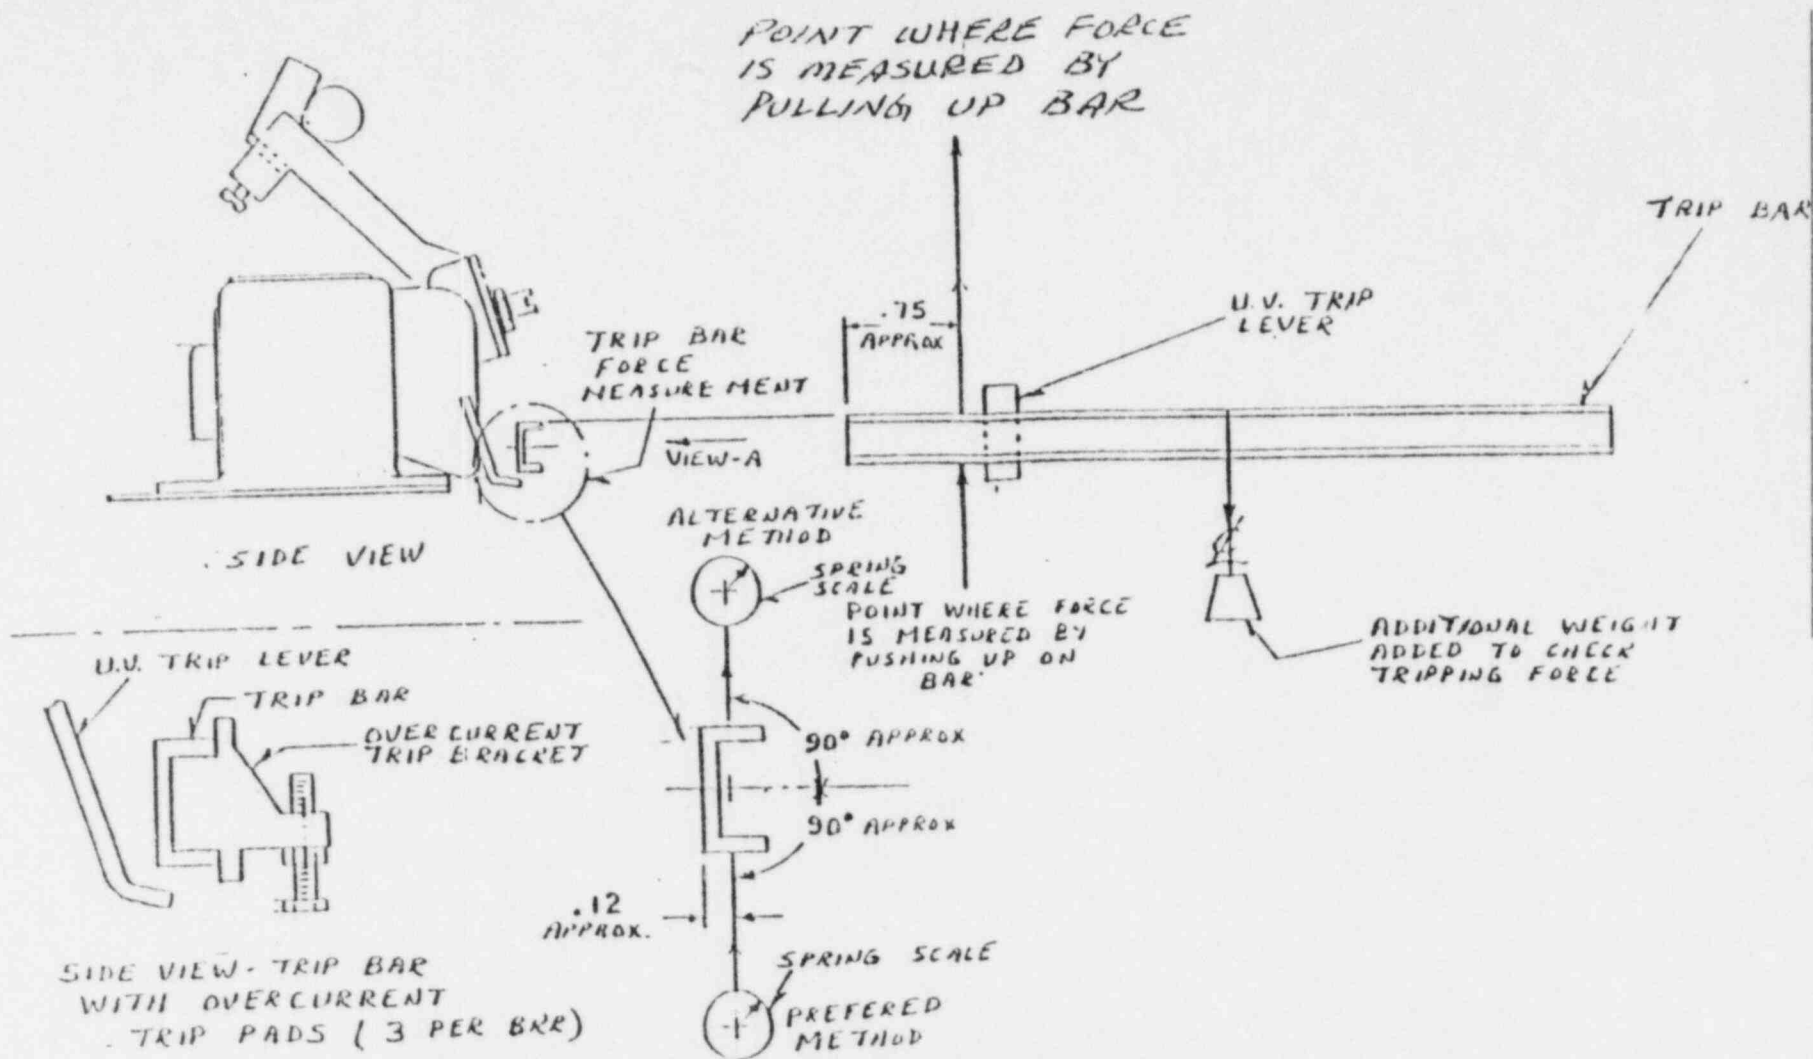 POINT WHERE FORCE
IS MEASURED BY
PULLING UP BAR
TRIP BAR
.75
APPROX
U.V. TRIP
LEVER
TRIP BAR
FORCE
MEASUREMENT
VIEW-A
SIDE VIEW
ALTERNATIVE
METHOD
SPRING
SCALE
POINT WHERE FORCE
IS MEASURED BY
PUSHING UP ON
BAR
ADDITIONAL WEIGHT
ADDED TO CHECK
TRIPPING FORCE
U.V. TRIP LEVER
TRIP BAR
OVERCURRENT
TRIP BRACKET
90° APPROX
90° APPROX
.12
APPROX.
SIDE VIEW - TRIP BAR
WITH OVERCURRENT
TRIP PADS (3 PER BKR)
SPRING SCALE
PREFERED
METHOD